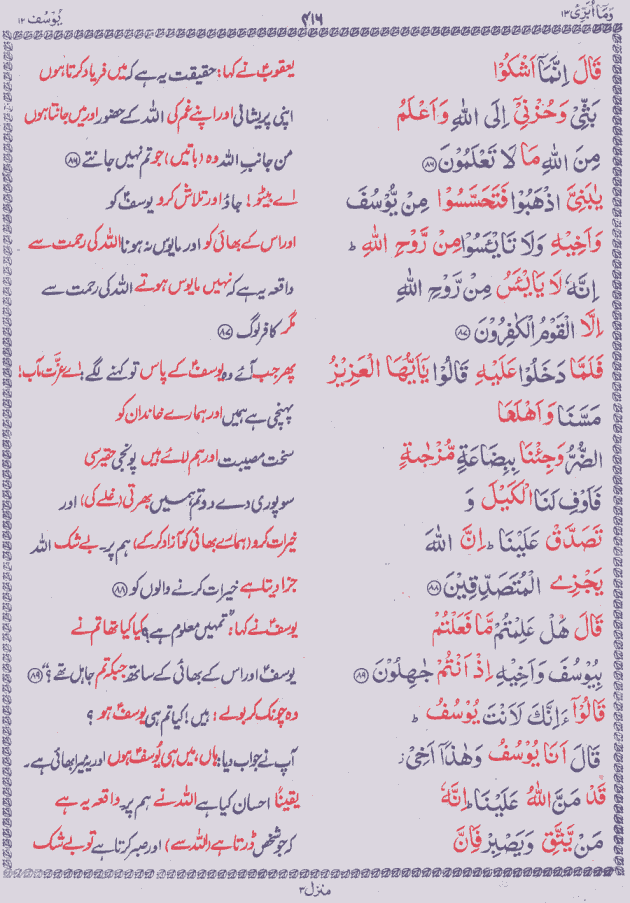 وَمَآ اُبَرِّئُ ۱۳
۴۱۶
یُوْسُف ۱۲
قَالَ اِنَّمَآ اَشْكُوْا
یعقوبؑ نے کہا: حقیقت یہ ہے کہ میں فریاد کرتا ہوں
بَثِّیْ وَحُزْنِیْٓ اِلَی اللّٰهِ وَاَعْلَمُ
اپنی پریشانی اور اپنے غم کی اللہ کے حضور اور میں جانتا ہوں
مِنَ اللّٰهِ مَا لَا تَعْلَمُوْنَ ﴿۸۶﴾
من جانبِ اللہ وہ (باتیں) جو تم نہیں جانتے ﴿۸۶﴾
یٰبَنِیَّ اذْهَبُوْا فَتَحَسَّسُوْا مِنْ یُّوْسُفَ
اے بیٹو! جاؤ اور تلاش کرو یوسفؑ کو
وَاَخِیْهِ وَلَا تَایْـَٔسُوْا مِنْ رَّوْحِ اللّٰهِ ؕ
اور اس کے بھائی کو اور مایوس نہ ہونا اللہ کی رحمت سے
اِنَّهٗ لَا یَایْـَٔسُ مِنْ رَّوْحِ اللّٰهِ
واقعہ یہ ہے کہ نہیں مایوس ہوتے اللہ کی رحمت سے
اِلَّا الْقَوْمُ الْكٰفِرُوْنَ ﴿۸۷﴾
مگر کافر لوگ ﴿۸۷﴾
فَلَمَّا دَخَلُوْا عَلَیْهِ قَالُوْا یٰٓاَیُّهَا الْعَزِیْزُ
پھر جب آئے وہ یوسفؑ کے پاس تو کہنے لگے: اے عزّت مآب!
مَسَّنَا وَاَهْلَنَا
پہنچی ہے ہمیں اور ہمارے خاندان کو
الضُّرُّ وَجِئْنَا بِبِضَاعَةٍ مُّزْجٰىةٍ
سخت مصیبت اور ہم لائے ہیں پونجی حقیر سی
فَاَوْفِ لَنَا الْكَیْلَ وَ
سو پوری دے دو تم ہمیں بھرتی (غلے کی) اور
تَصَدَّقْ عَلَیْنَا ؕ اِنَّ اللّٰهَ
خیرات کرو (ہمارے بھائی کو آزاد کر کے) ہم پر۔ بے شک اللہ
یَجْزِی الْمُتَصَدِّقِیْنَ ﴿۸۸﴾
جزا دیتا ہے خیرات کرنے والوں کو ﴿۸۸﴾
قَالَ هَلْ عَلِمْتُمْ مَّا فَعَلْتُمْ
یوسفؑ نے کہا: "تمہیں معلوم ہے؟ کیا کیا تھا تم نے
بِیُوْسُفَ وَاَخِیْهِ اِذْ اَنْتُمْ جٰهِلُوْنَ ﴿۸۹﴾
یوسفؑ اور اس کے بھائی کے ساتھ جبکہ تم جاہل تھے؟" ﴿۸۹﴾
قَالُوْٓا ءَاِنَّكَ لَاَنْتَ یُوْسُفُ ؕ
وہ چونک کر بولے: ہیں! کیا تم ہی یوسفؑ ہو؟
قَالَ اَنَا یُوْسُفُ وَهٰذَآ اَخِیْ ؗ
آپ نے جواب دیا: ہاں، میں ہی یُوسفؑ ہوں اور یہ میرا بھائی ہے۔
قَدْ مَنَّ اللّٰهُ عَلَیْنَا ؕ اِنَّهٗ
یقینًا احسان کیا ہے اللہ نے ہم پر۔ واقعہ یہ ہے
مَنْ یَّتَّقِ وَیَصْبِرْ فَاِنَّ
کہ جو شخص ڈرتا ہے (اللہ سے) اور صبر کرتا ہے تو بے شک
منزل ۳